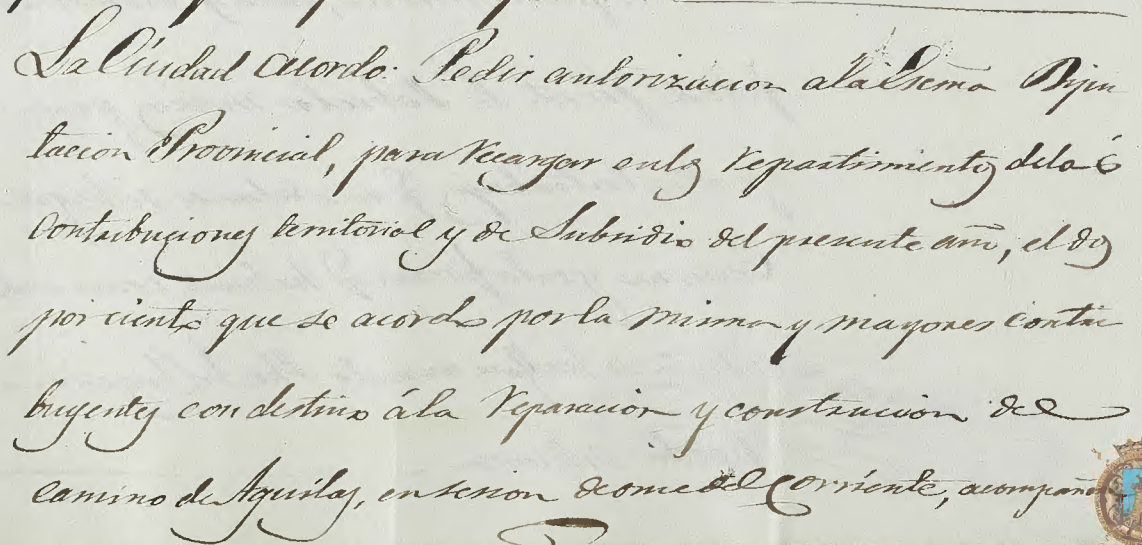 La Ciudad Acordo: Pedir autorizacion ala Exma Dipu
tacion Provincial, para recargar enlos repartimientos delas
Contribuciones territorial y de Subsidio del presente año, el dos
por ciento que se acordo por la misma y mayores contri
buyentes con destino ála reparacion y construccion del
camino de Aguilas, en sesion de once del corriente, acompaña